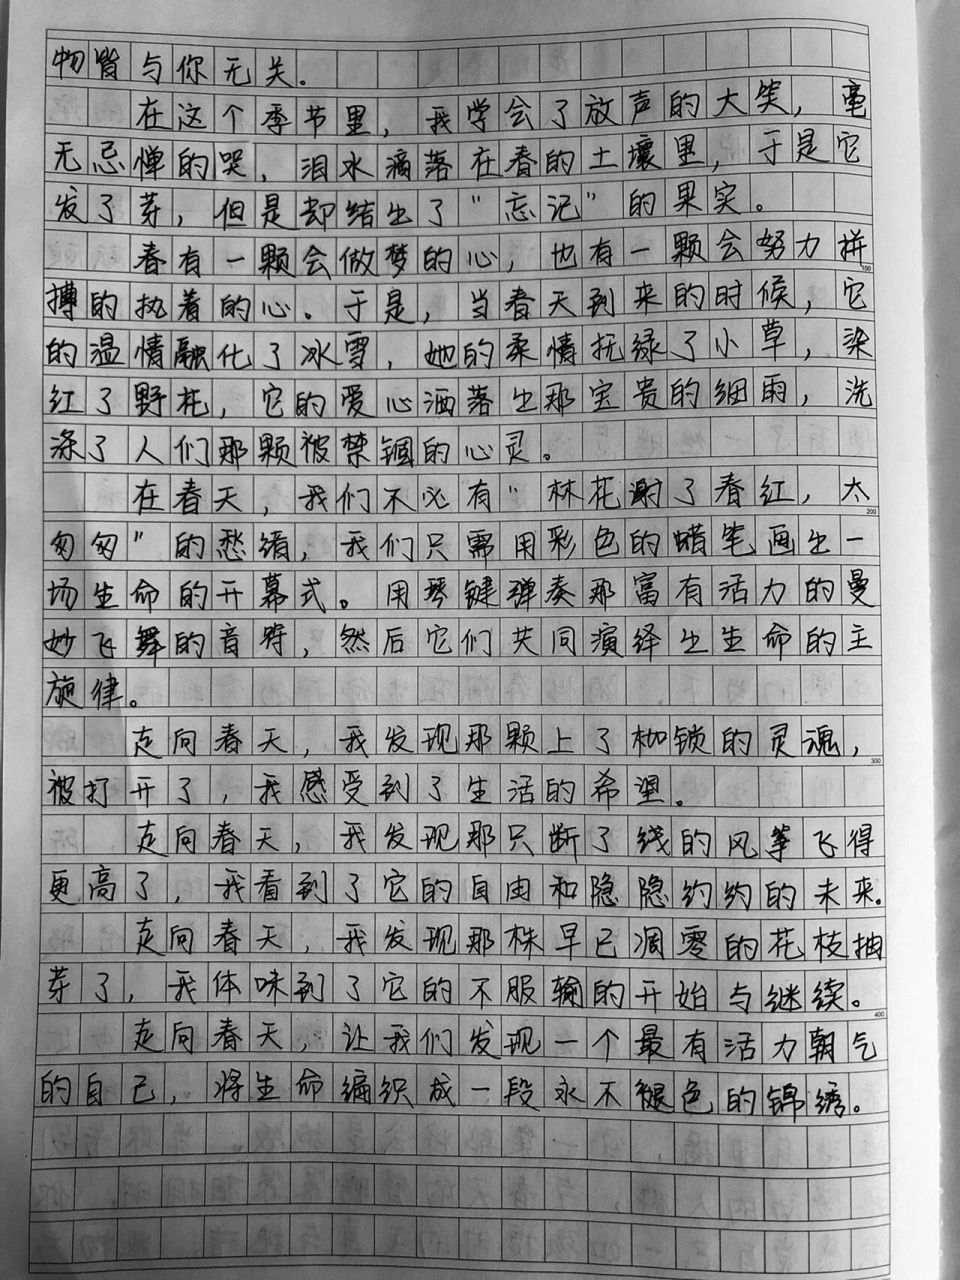 物皆与你无关.
在这个季节里，我学会了放声的大笑，毫
无忌惮的哭，泪水滴落在春的土壤里，于是它
发了芽，但是却结出了“忘记”的果实。
春有一颗会做梦的心，也有一颗会努力拼
100
搏的执着的心。于是，当春天到来的时候，它
的温情融化了冰雪，她的柔情抚绿了小草，染
红了野花，它的爱心洒落出那宝贵的细雨，洗
涤了人们那颗被禁锢的心灵。
在春天，我们不必有“林花谢了春红，太
200
匆匆”的愁绪，我们只需用彩色的蜡笔画出一
场生命的开幕式。用琴键弹奏那富有活力的曼
妙飞舞的音符，然后它们共同演绎出生命的主
旋律。
走向春天，我发现那颗上了枷锁的灵魂，
300
被打开了，我感受到了生活的希望。
走向春天，我发现那只断了线的风筝飞得
更高了，我看到了它的自由和隐隐约约的未来.
走向春天，我发现那株早已凋零的花枝抽
芽了，我体味到了它的不服输的开始与继续。
400
走向春天，让我们发现一个最有活力朝气
的自己，将生命编织成一段永不褪色的锦绣。